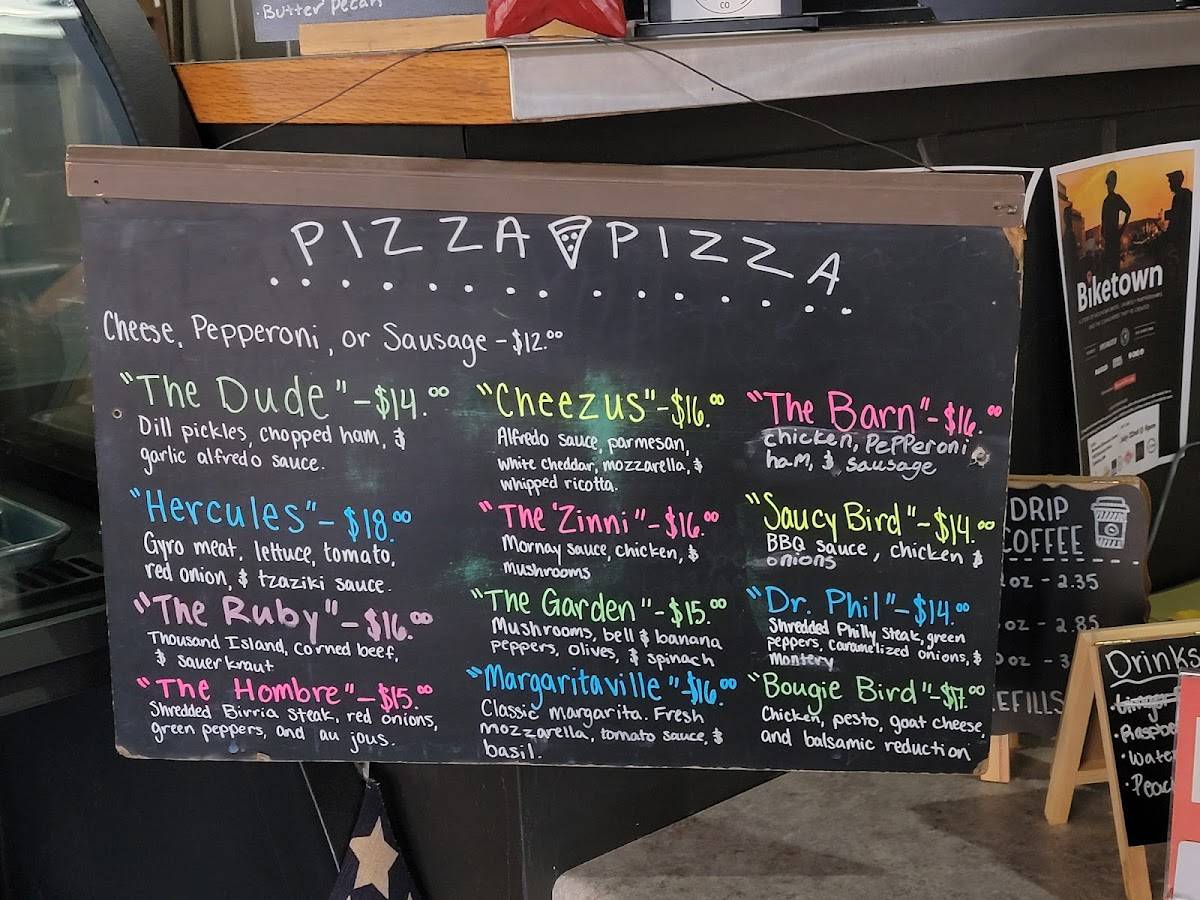 Butter Pecan
CO
PIZZA PIZZA
Cheese, Pepperoni, or Sausage - $12.00
"The Dude" - $14.00
Dill pickles, chopped ham, &
garlic alfredo sauce.
"Hercules" - $18.00
Gyro meat, lettuce, tomato,
red onion, & tzaziki sauce.
"The Ruby" - $16.00
Thousand Island, corned beef,
& sauerkraut
"The Hombre" - $15.00
Shredded Birria steak, red onions,
green peppers, and au jous.
"Cheezus" - $16.00
Alfredo sauce, parmesan,
white cheddar, mozzarella, &
whipped ricotta.
"The 'Zinni" - $16.00
Mornay sauce, chicken, &
mushrooms
"The Garden" - $15.00
Mushrooms, bell & banana
peppers, olives, & spinach
"Margaritaville" - $16.00
Classic margarita. Fresh
mozzarella, tomato sauce, &
basil.
"The Barn" - $16.00
chicken, pepperoni,
ham, & sausage
"Saucy Bird" - $14.00
BBQ sauce, chicken &
onions
"Dr. Phil" - $14.00
Shredded Philly steak, green
peppers, caramelized onions, &
montery
"Bougie Bird" - $17.00
Chicken, pesto, goat cheese,
and balsamic reduction
Biketown
DRIP
COFFEE
oz - 2.35
oz - 2.85
oz - 3
EFILLS
Drinks
Raspbe
Wate
Peac